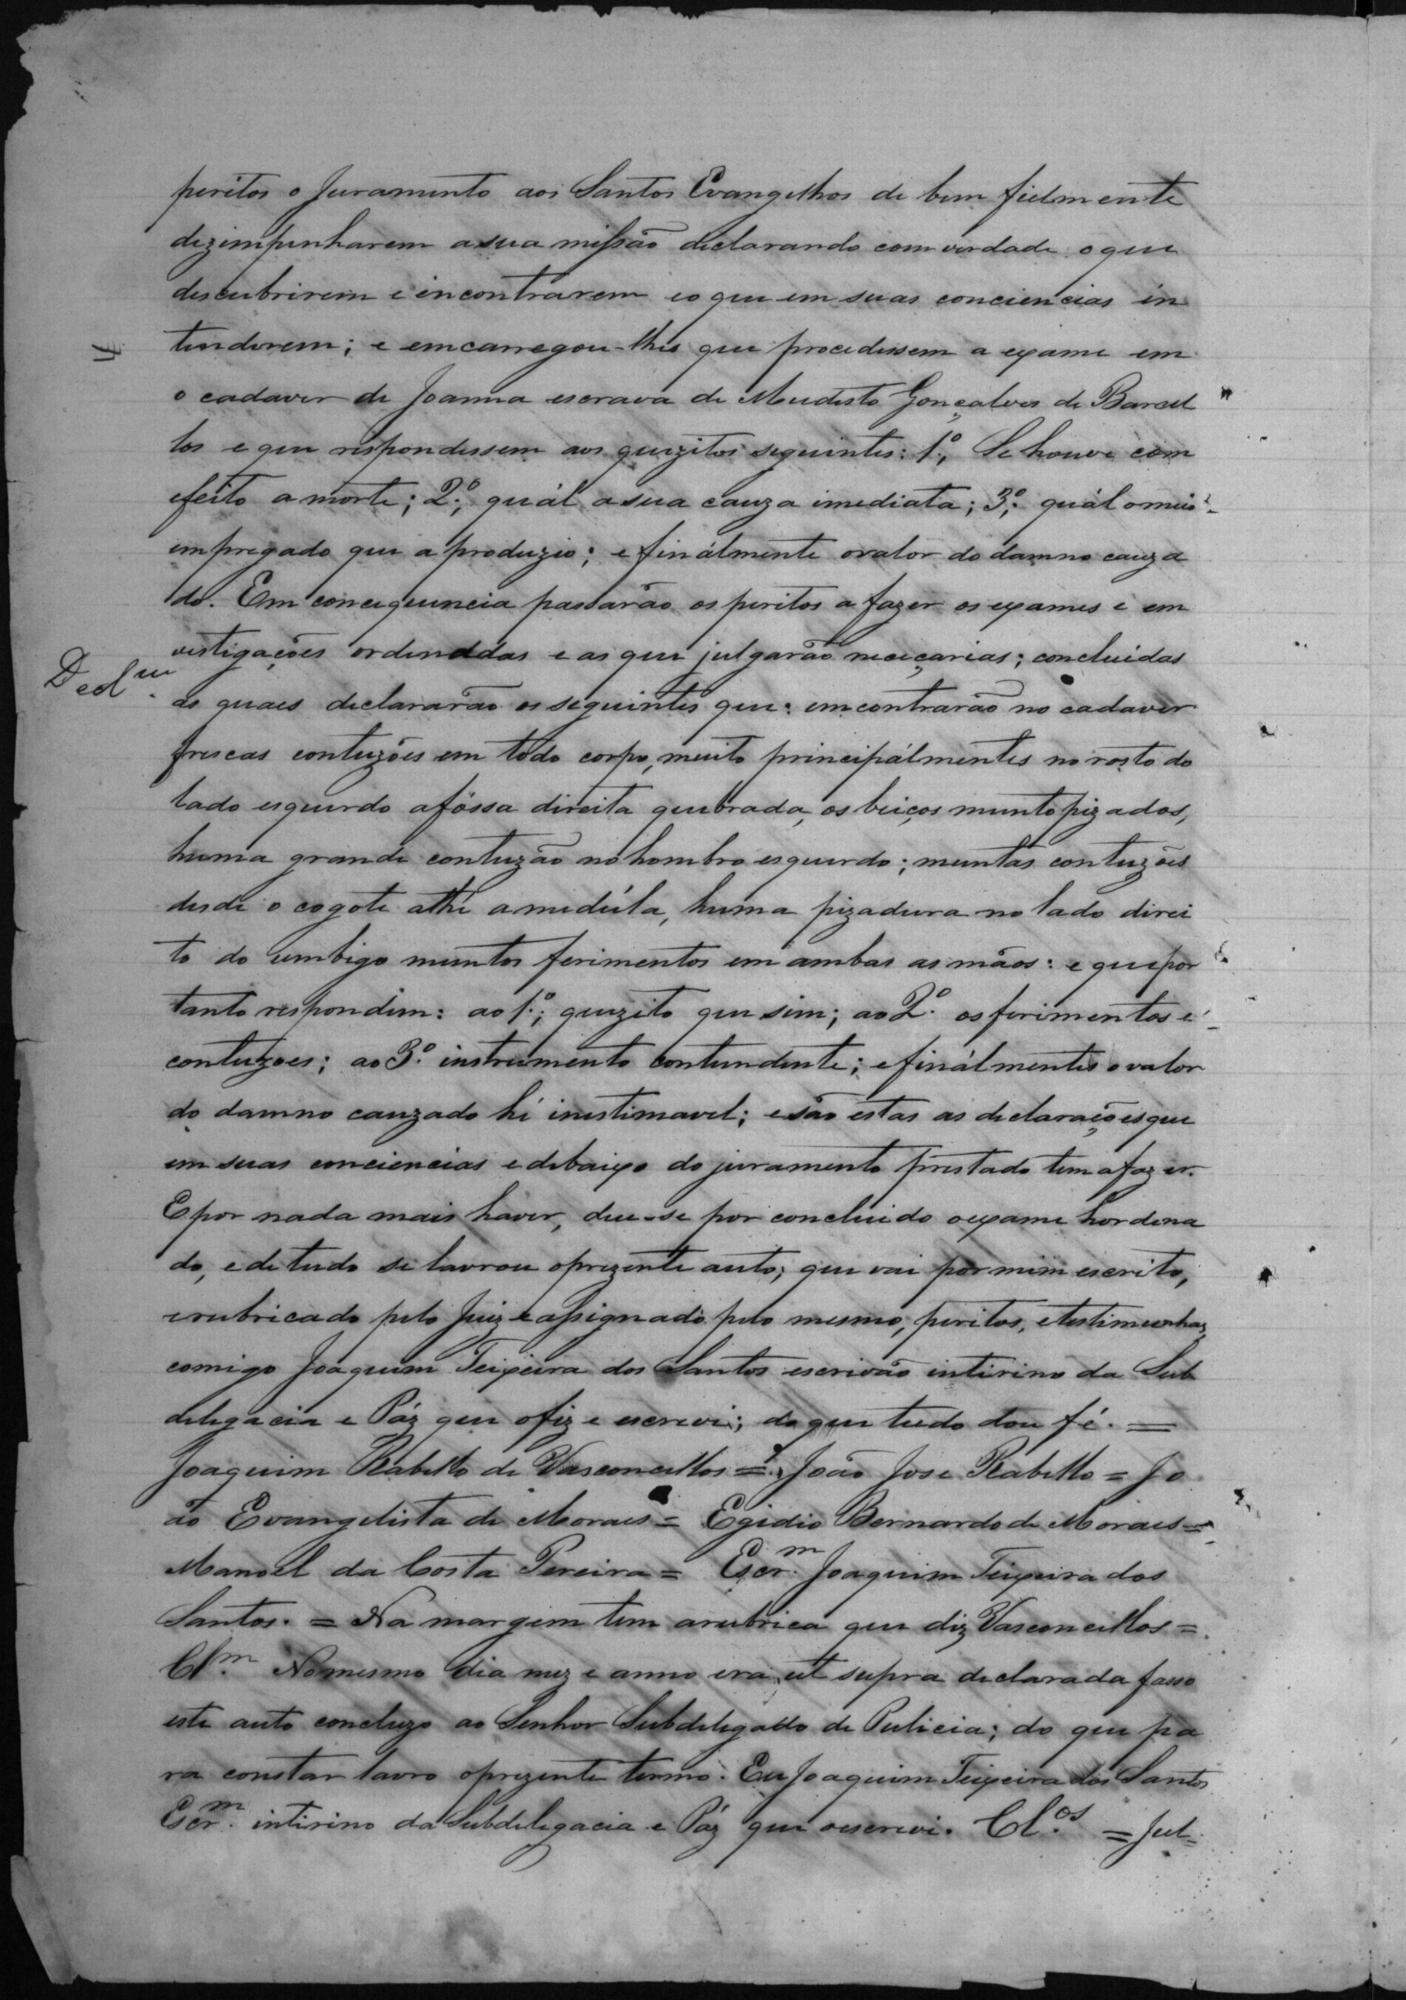 peritos o Juramento aos Santos Evangelhos de bem fielmente
dezimpenharem a sua missão declarando com verdade o que
descubrirem e incontrarem e o que em suas conciencias in
tenderem; e emcarregou-lhes que procedessem a exame em
o cadaver de Joanna escrava de Mudesto Gonçalves de Barcel
los e que respondessem aos quezitos seguintes: 1.º; Se houve com
efeito a morte; 2.º; quál a sua cauza imediata; 3.º; quál o meio
empregado que a produzio; e finálmente o valor do damno cauza
do. Em concequencia passarão os peritos a fazer os exames e em
vestigações ordenádas e as que julgarão neceçarias; concluidas
Decl.m
as quaes declararão os seguintes que: emcontrarão no cadaver
frescas contuzões em todo corpo, muito principálmentes no rosto do
lado esquerdo a fóssa direita quebrada, os beiços munto pizados,
huma grande contuzão no hombro esquerdo; muntas contuzões
desde o cogote athé a medúla, huma pizadura no lado direi
to do umbigo muntos ferimentos em ambas as mãos: e que por
tanto respondem: ao 1.º; quezito que sim; ao 2.º os ferimentos e
contuzoes; ao 3.º instrumento contundente; e finálmentes o valor
do damno cauzado hé inestimavel; e são estas as declarações que
em suas conciencias e debaixo do juramento prestado tem a fazer.
E por nada mais haver, deu-se por concluido o exame hordena
do, e de tudo se lavrou o prezente auto; que vai por mim escrito,
e rubricado pelo Juiz e assignado pelo mesmo, peritos, e testimunhas,
comigo Joaquim Teixeira dos Santos escrivão intirino da Sub
delegacia e Páz que o fiz e escrevi; do que tudo dou fé. =
Joaquim Rabello de Vasconcellos = João Jose Rabello = Jo
ão Evangelista de Moraes = Egidio Bernardo de Moraes =
Manoel da Costa Pereira = Escr.m Joaquim Teixeira dos
Santos. = Na margem tem a rubrica que diz Vasconcellos =
Cl.m No mesmo dia mez e anno era ut supra declarada fasso
este auto concluzo ao Senhor Subdelegado de Pulicia; do que pa
ra constar lavro o prezente termo. Eu Joaquim Teixeira dos Santos
Escr.m intirino da Subdelegacia e Páz que o escrevi. Cl.os = Jul-